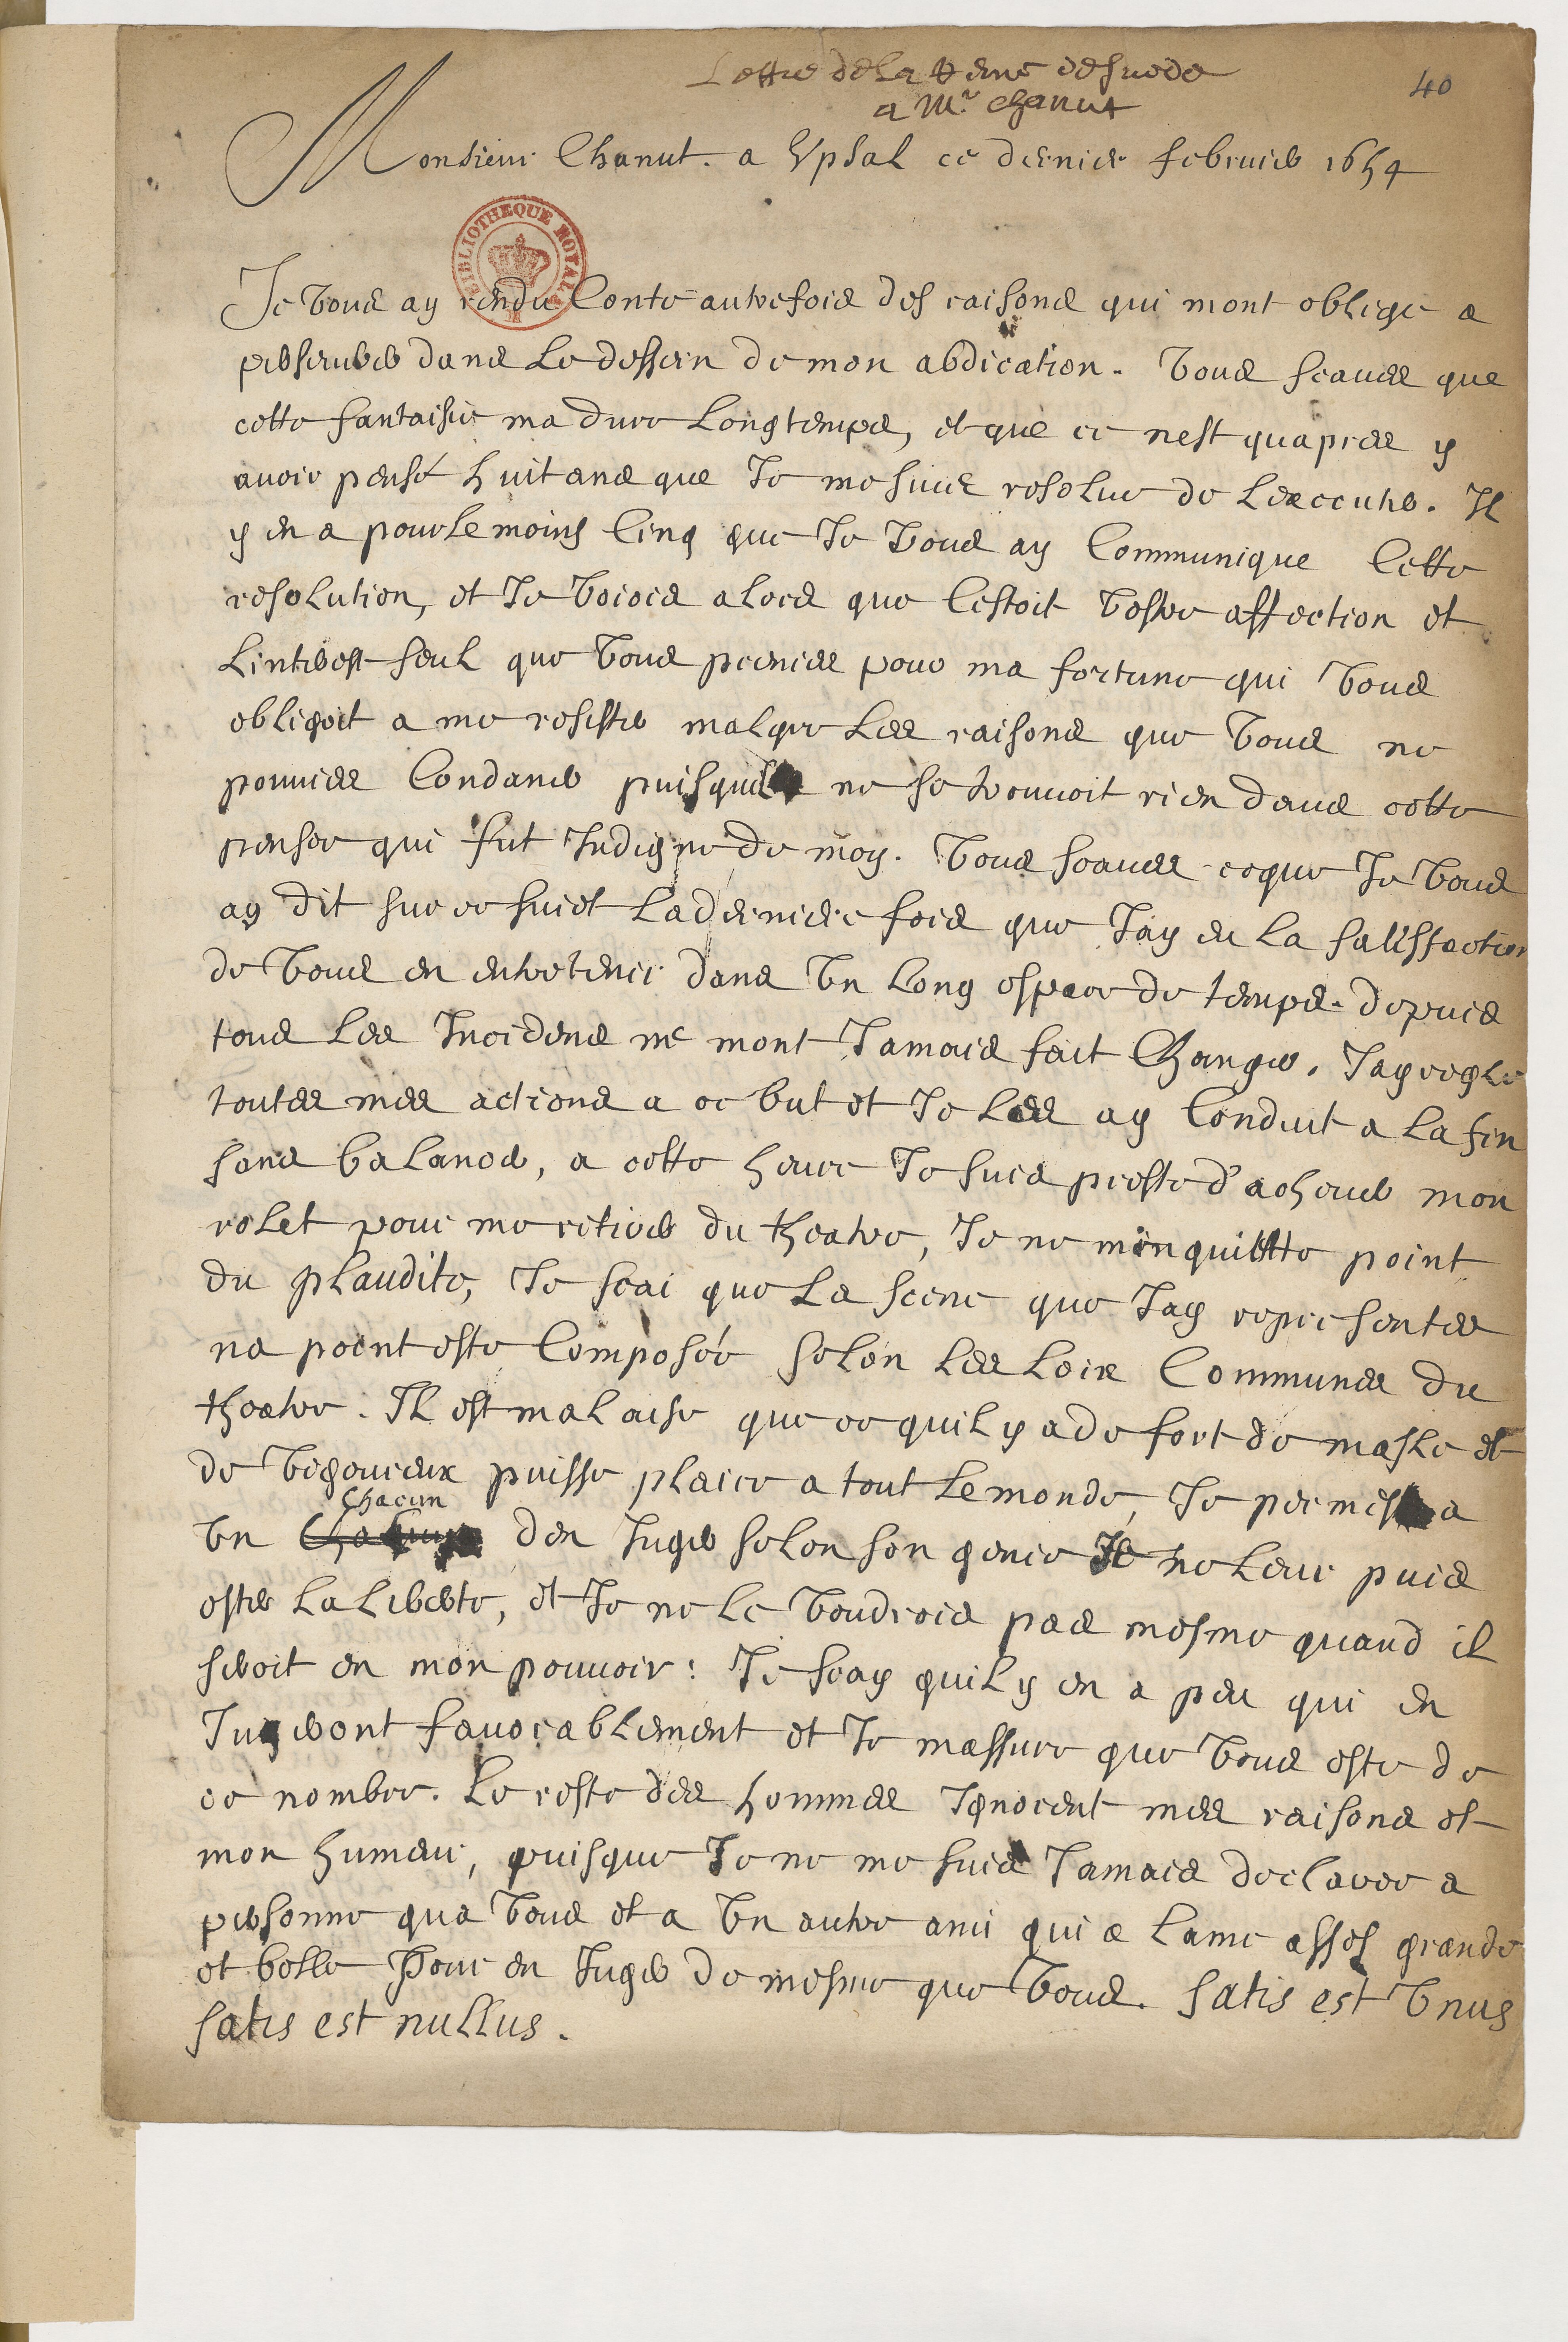 Lettre de la Reine de suede
a Mr. Chanut
40
Monsieur Chanut. a Vpsal ce dernier februier 1654
BIBLIOTHEQUE ROYALE
Je vous ay rendu Conte autrefois des raisons qui mont oblige a
perseuerer dans Le dessein de mon abdication. vous scaues que
cette fantaisie ma dure Longtemps, et que ce nest quapres y
auoir pensé huit ans que Je me suis resolue de Lexecuter. Il
y en a pour le moins Cinq que Je vous ay Communique Cette
resolution, et Je voiois alors que Cestoit vostre affection et
Linterest seul que vous prenies pour ma fortune qui vous
obligoit a me resister malgre Les raisons que vous ne
pouuies Condamner puisquil ne se trouuoit rien dans cette
pensee qui fut Indigne de moy. vous scaues ce que Je vous
ay dit sur ce suiet La derniere fois que Jay eu La satisfaction
de vous en entretenir dans vn Long espace de temps. depuis
tous Les Incidens ne mont Jamais fait Changer. Jay regle
toutes mes actions a ce but et Je Les ay Conduit a La fin
sans balancer, a cette heure Je suis preste d'acheuer mon
rolet pour me retirer du theatre, Je ne minquitte point
du plaudite, Je scai que La scene que Jay representee
na point este Composée selon Les Loix Communes du
theatre. Il est mal aise que ce quil y a de fort de masle et
de vigoureux puisse plaire a tout Le monde, Je permes a
vn Chacun den Juger selon son genie Je ne Leur puis
oster La Liberte, et Je ne Le voudrois pas mesme quand il
seroit en mon pouuoir: Je scay quil y en a peu qui en
Jugeront fauorablement et Je massure que vous este de
ce nombre. Le reste des hommes Ignorent mes raisons et
mon humeur, puisque Je ne me suis Jamais declaree a
personne qua vous et a vn autre ami qui a Lame asses grande
et belle Pour en Juger de mesme que vous. satis est vnus
satis est nullus.